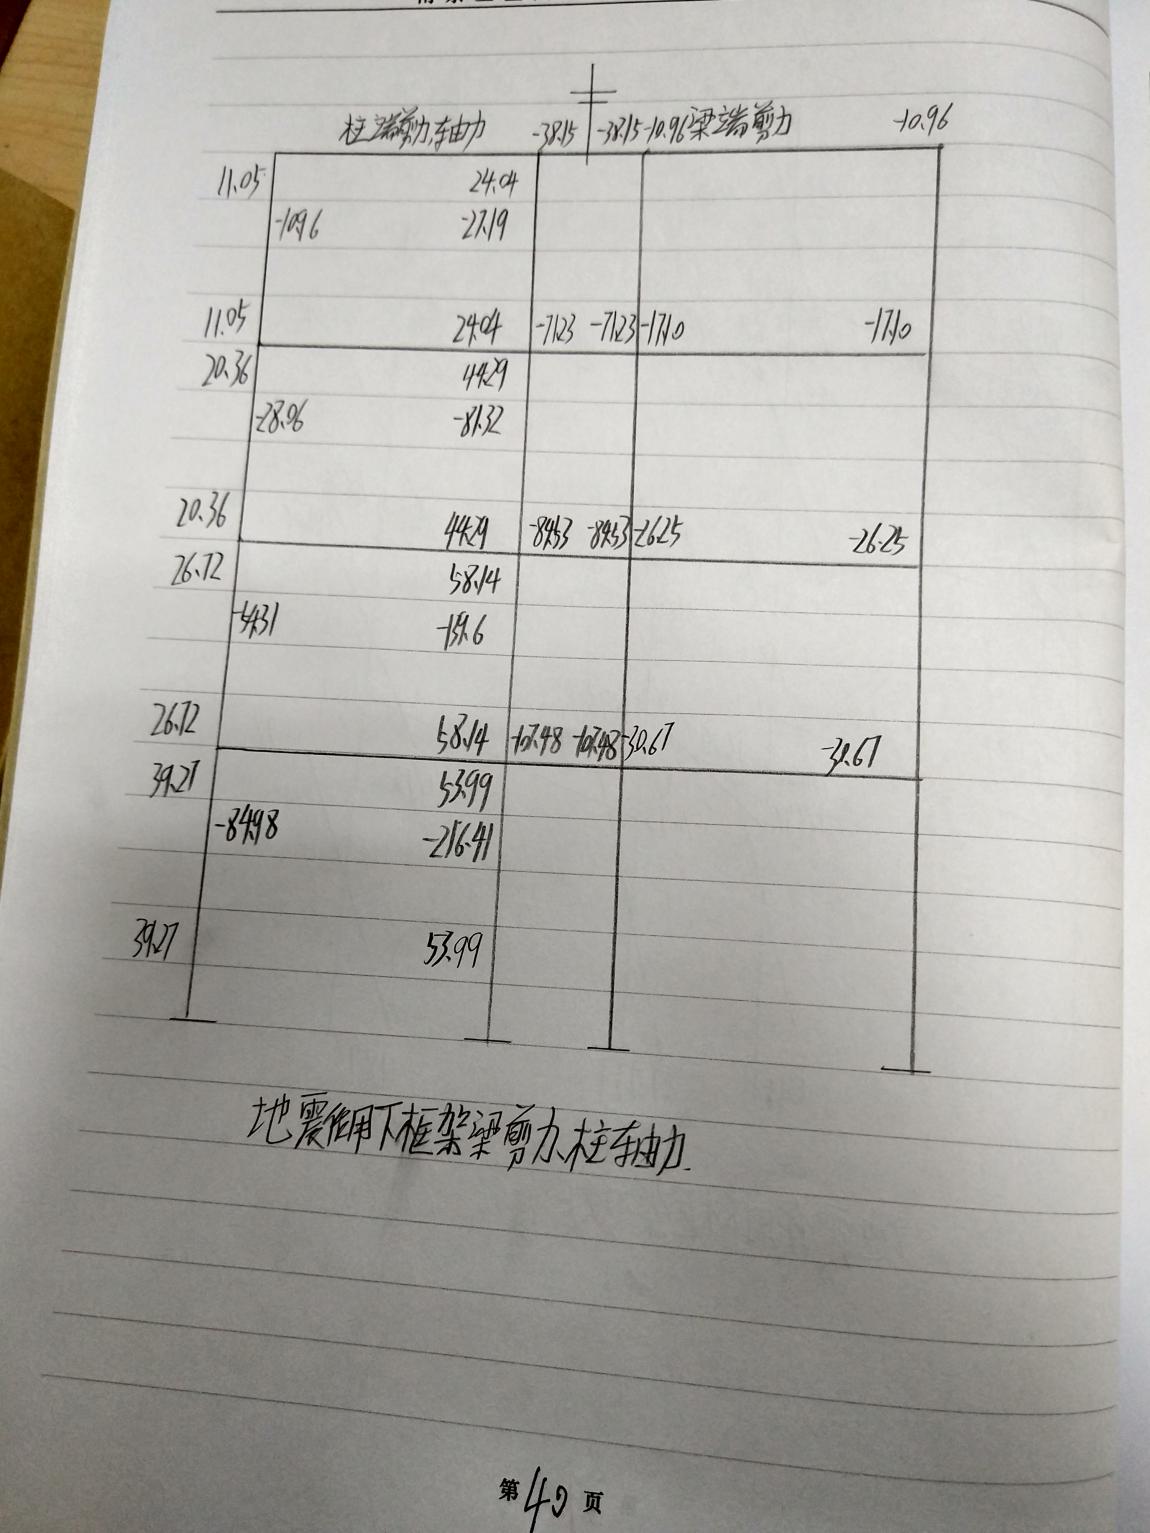 柱端剪力,轴力 -38.15 -38.15 -10.96 梁端剪力 -10.96
11.05 24.04
-10.96 -27.19
11.05 24.04 -71.23 -71.23 -17.10 -17.10
20.36 44.29
-28.06 -81.32
20.36 44.29 -84.53 -84.53 -26.25 -26.25
26.72 58.14
-54.31 -139.6
26.72 58.14 -107.48 -107.48 -30.67 -30.67
39.27 53.99
-84.98 -216.41
39.27 53.99
地震作用下框架梁剪力、柱轴力.
第40页